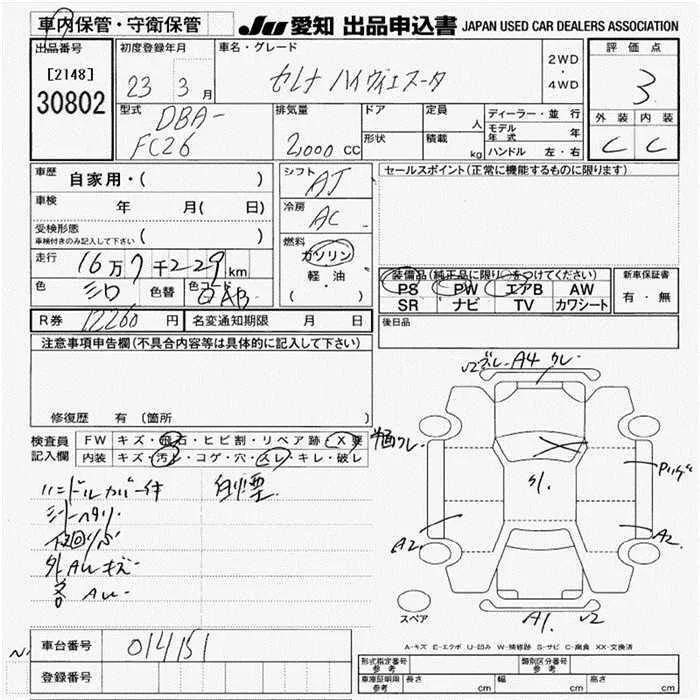 車内保管・守衛保管
JU 愛知 出品申込書 JAPAN USED CAR DEALERS ASSOCIATION
出品番号
[2148]
30802
初度登録年月
23 3 月
車名・グレード
セレナ ハイウェイスター
2WD
・
4WD
評価点
3
外装 内装
C C
型式
DBA-
FC26
排気量
2,000 CC
ドア
形状
定員
人
積載
kg
ディーラー・並行
モデル年式 年
ハンドル 左・右
車歴 自家用・( )
車検 年 月( 日)
受検形態
車検付きのみ記入して下さい ( )
走行 16万7千229km
色 シロ 色替 色コード QAB
R券 12260 円 名変通知期限 月 日
シフト AT
冷房 AC
燃料
ガソリン
・
軽・油
( )
セールスポイント(正常に機能するものに限ります)
装備品(純正品に限り○をつけてください)
PS PW エアB AW
SR ナビ TV カワシート
新車保証書
有・無
後日品
注意事項申告欄(不具合内容等は具体的に記入して下さい)
修復歴 有 (箇所 )
検査員
記入欄
FW キズ・飛石・ヒビ割・リペア跡・X要
内装 キズ・汚レ・コゲ・穴・スレ・キレ・破レ
ハンドルカバー付
外AUキズー
自煙
A4
A2
A2
A1
スペア
A-キズ E-エクボ U-凹み W-補修跡 S-サビ C-腐食 XX-交換済
車台番号 014151
登録番号
型式指定番号
参考
類別区分番号
参考
車庫証明期限
参考
長さ cm 幅 cm 高さ cm